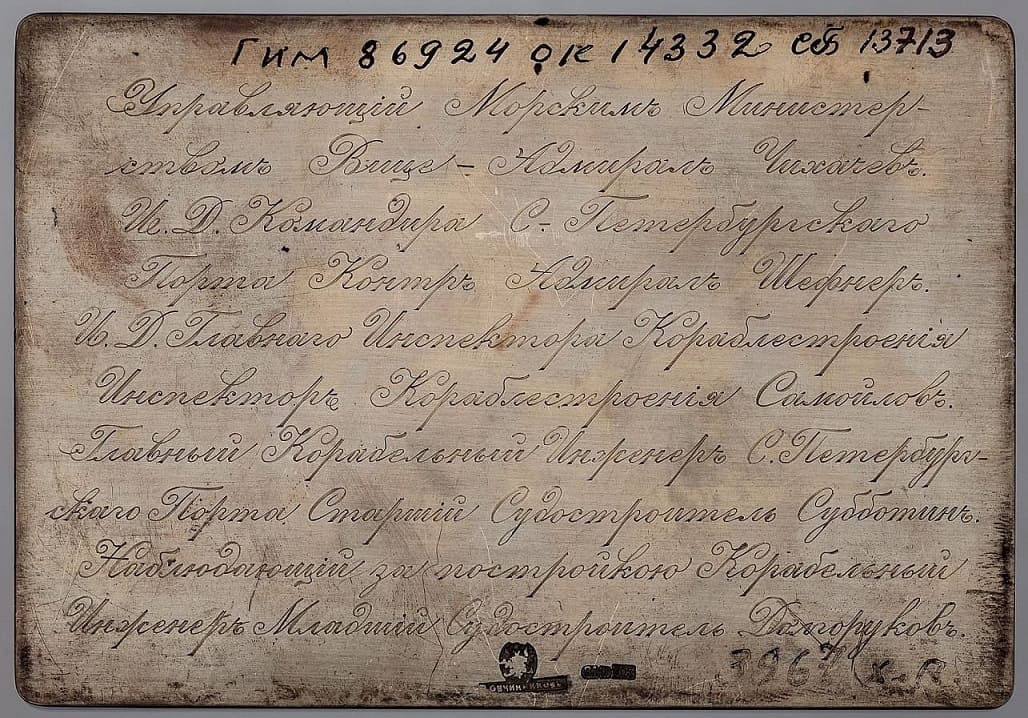 ГИМ 86924 ОК 14332 сб 13713
Управляющій Морскимъ Министер-
ствомъ Вице-Адмиралъ Чихачевъ.
И. Д. Командира С-Петербургскаго
Порта Контръ Адмиралъ Шефнеръ.
И. Д. Главнаго Инспектора Кораблестроенія
Инспекторъ Кораблестроенія Самойловъ.
Главный Корабельный Инженеръ С. Петербург-
скаго Порта Старшій Судостроитель Субботинъ.
Наблюдающій за постройкою Корабельный
Инженеръ Младшій Судостроитель Долгоруковъ.
3967